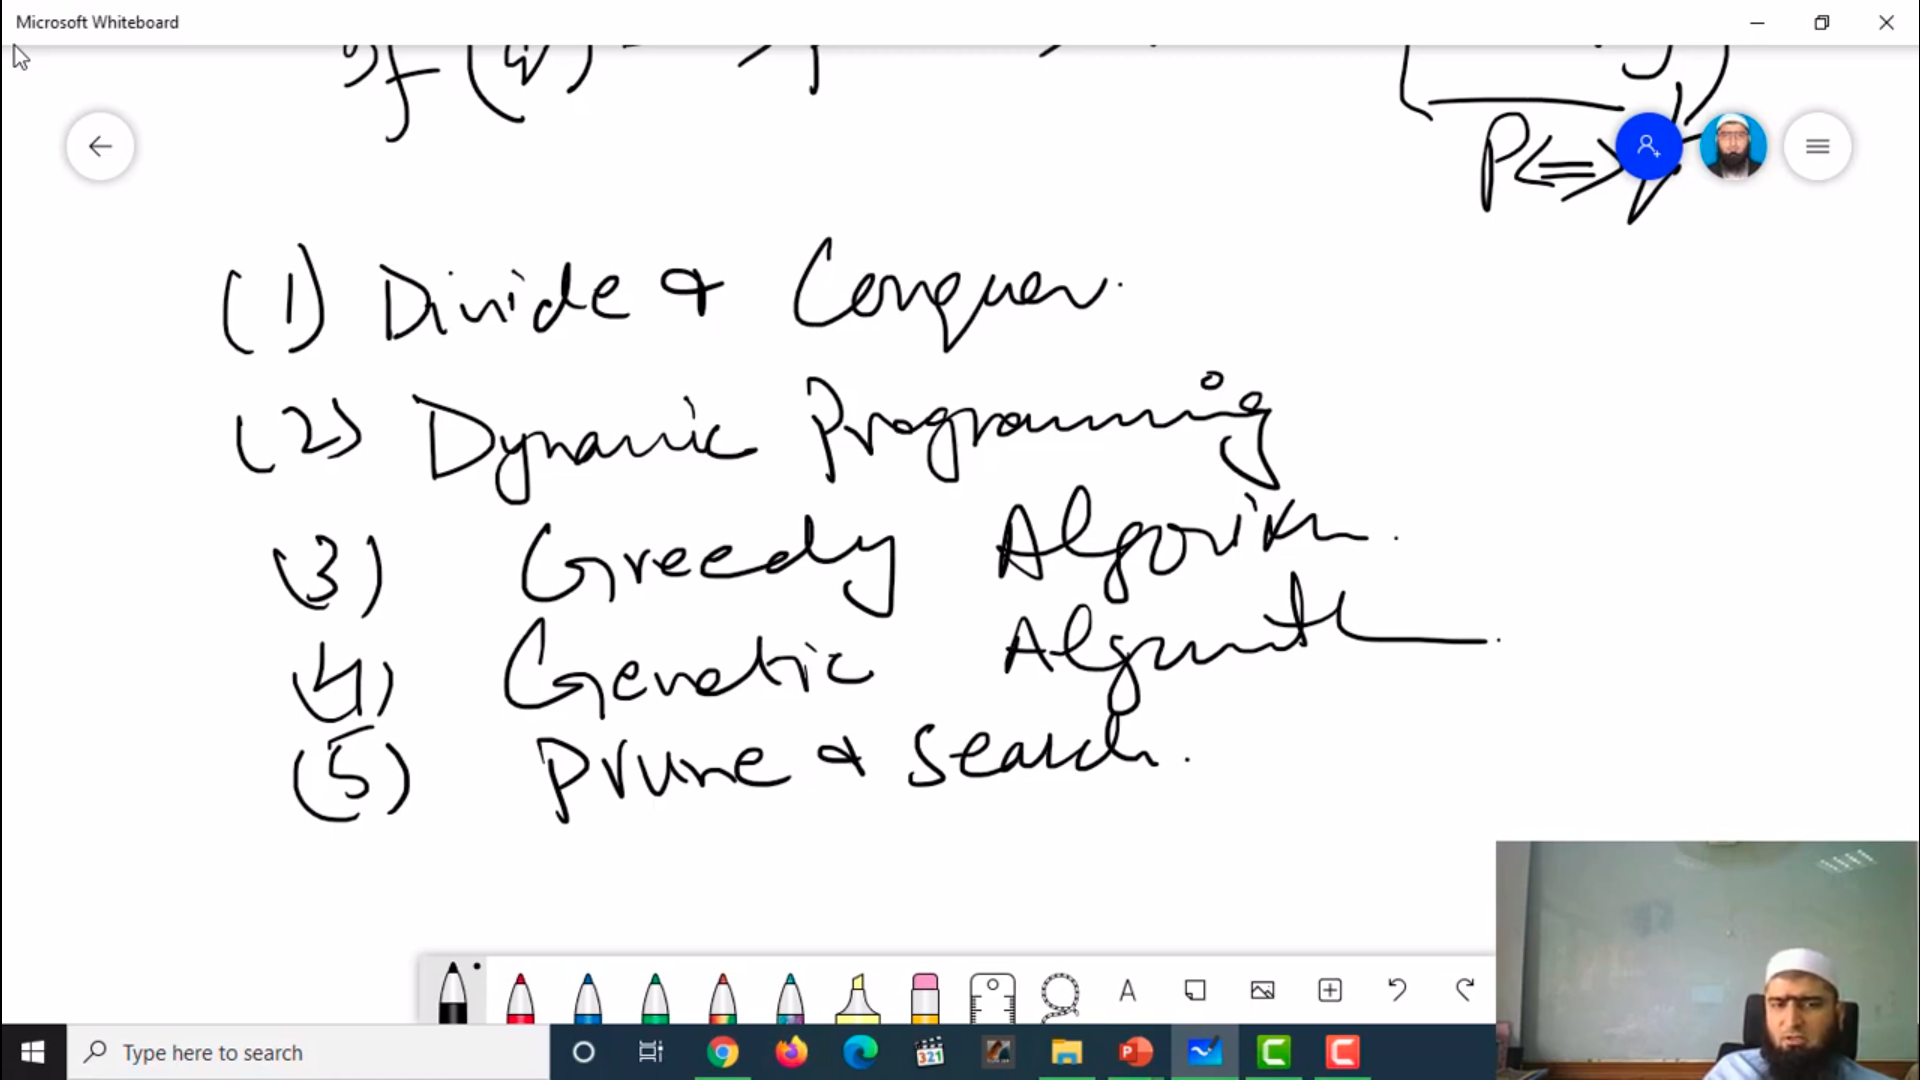 Microsoft Whiteboard
if (q)
P<=>q
(1) Divide & Conquer.
(2) Dynamic Programming
(3) Greedy Algorithm.
(4) Genetic Algorithm.
(5) Prune & Search.
A
321
P
C
C
Type here to search